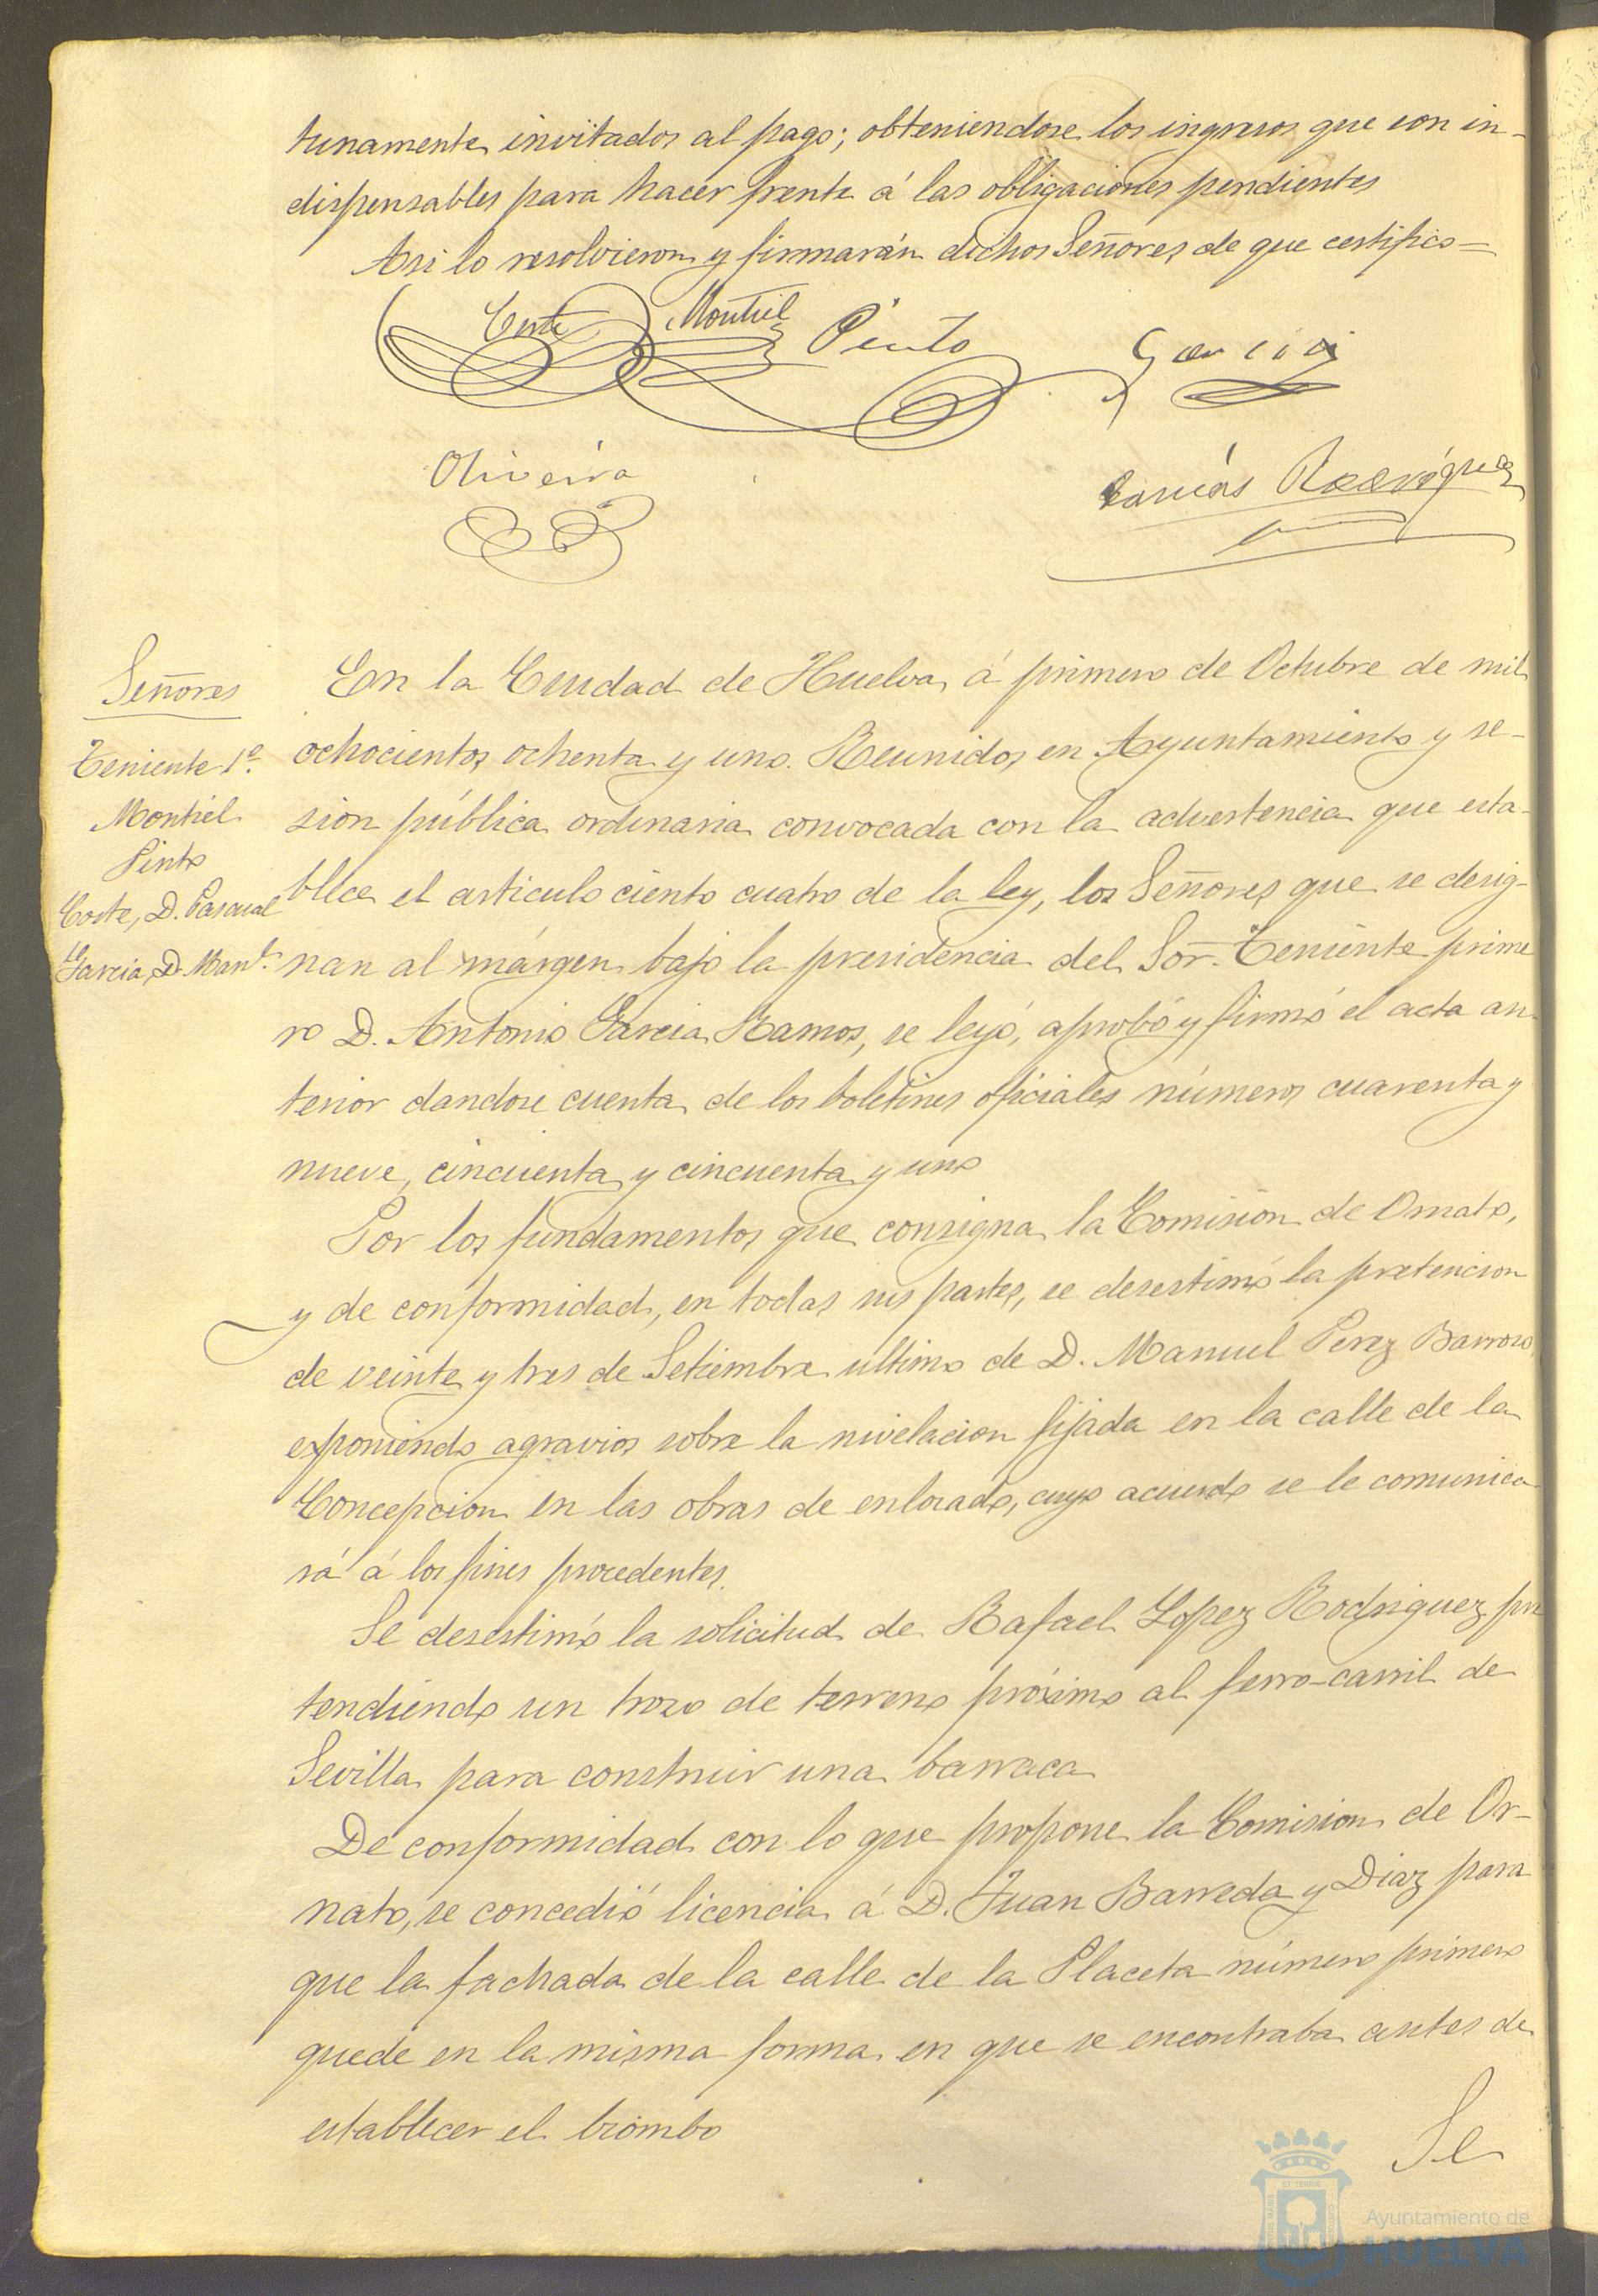 tunamente invitados al pago; obteniendose los ingresos que son in-
dispensables para hacer frente á las obligaciones pendientes
Asi lo resolvieron y firmarán dichos Señores de que certifico=
Coste Montiel Pinto Garcia
Oliveira Rodriguez
Señores
Teniente 1º.
Montiel
Pinto
Coste, D. Pascual
Garcia, D. Manl.
En la Ciudad de Huelva, á primero de Octubre de mil
ochocientos ochenta y uno. Reunidos en Ayuntamiento y se-
sion pública ordinaria convocada con la advertencia que esta-
blece el articulo ciento cuatro de la ley, los Señores que se desig-
nan al márgen bajo la presidencia del Sor. Teniente prime
ro D. Antonio Garcia Ramos, se leyó, aprobó y firmó el acta an-
terior dandose cuenta de los boletines oficiales números cuarenta y
nueve, cincuenta y cincuenta y uno
Por los fundamentos que consigna la Comision de Ornato,
y de conformidad, en todas sus partes, se desestimó la pretencion
de veinte y tres de Setiembre último de D. Manuel Perez Barroso,
exponiendo agravios sobre la nivelacion fijada en la calle de la
Concepcion en las obras de enlosado, cuyo acuerdo se le comunica
rá á los fines procedentes.
Se desestimó la solicitud de Rafael Lopez Rodriguez pre
tendiendo un trozo de terreno próximo al ferro-carril de
Sevilla para construir una barraca
De conformidad con lo que propone la Comision de Or-
nato, se concedió licencia á D. Juan Barreda y Diaz para
que la fachada de la calle de la Placeta número primero
quede en la misma forma en que se encontraba antes de
establecer el biombo
Se
Ayuntamiento de
HUELVA